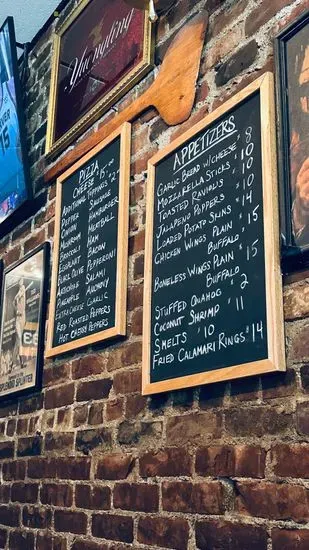 Yuengling
PIZZA
CHEESE $15.00
ADDITIONAL
TOPPINGS $2.00
PEPPER SAUSAGE
ONION HAMBURGER
MUSHROOM MEATBALL
BROCCOLI HAM
EGGPLANT BACON
BLACK OLIVE PEPPERONI
ARTICHOKE SALAMI
PINEAPPLE ANCHOVY
EXTRA CHEESE GARLIC
RED ROASTED PEPPERS
HOT CHERRY PEPPERS
APPETIZERS
GARLIC BREAD W/ CHEESE $8
MOZZARELLA STICKS $10
TOASTED RAVIOLIS $10
JALAPENO POPPERS $10
LOADED POTATO SKINS $14
CHICKEN WINGS PLAIN $15
BUFFALO
BONELESS WINGS PLAIN $15
BUFFALO
STUFFED QUAHOG $2
COCONUT SHRIMP $11
SMELTS $10
FRIED CALAMARI RINGS $14